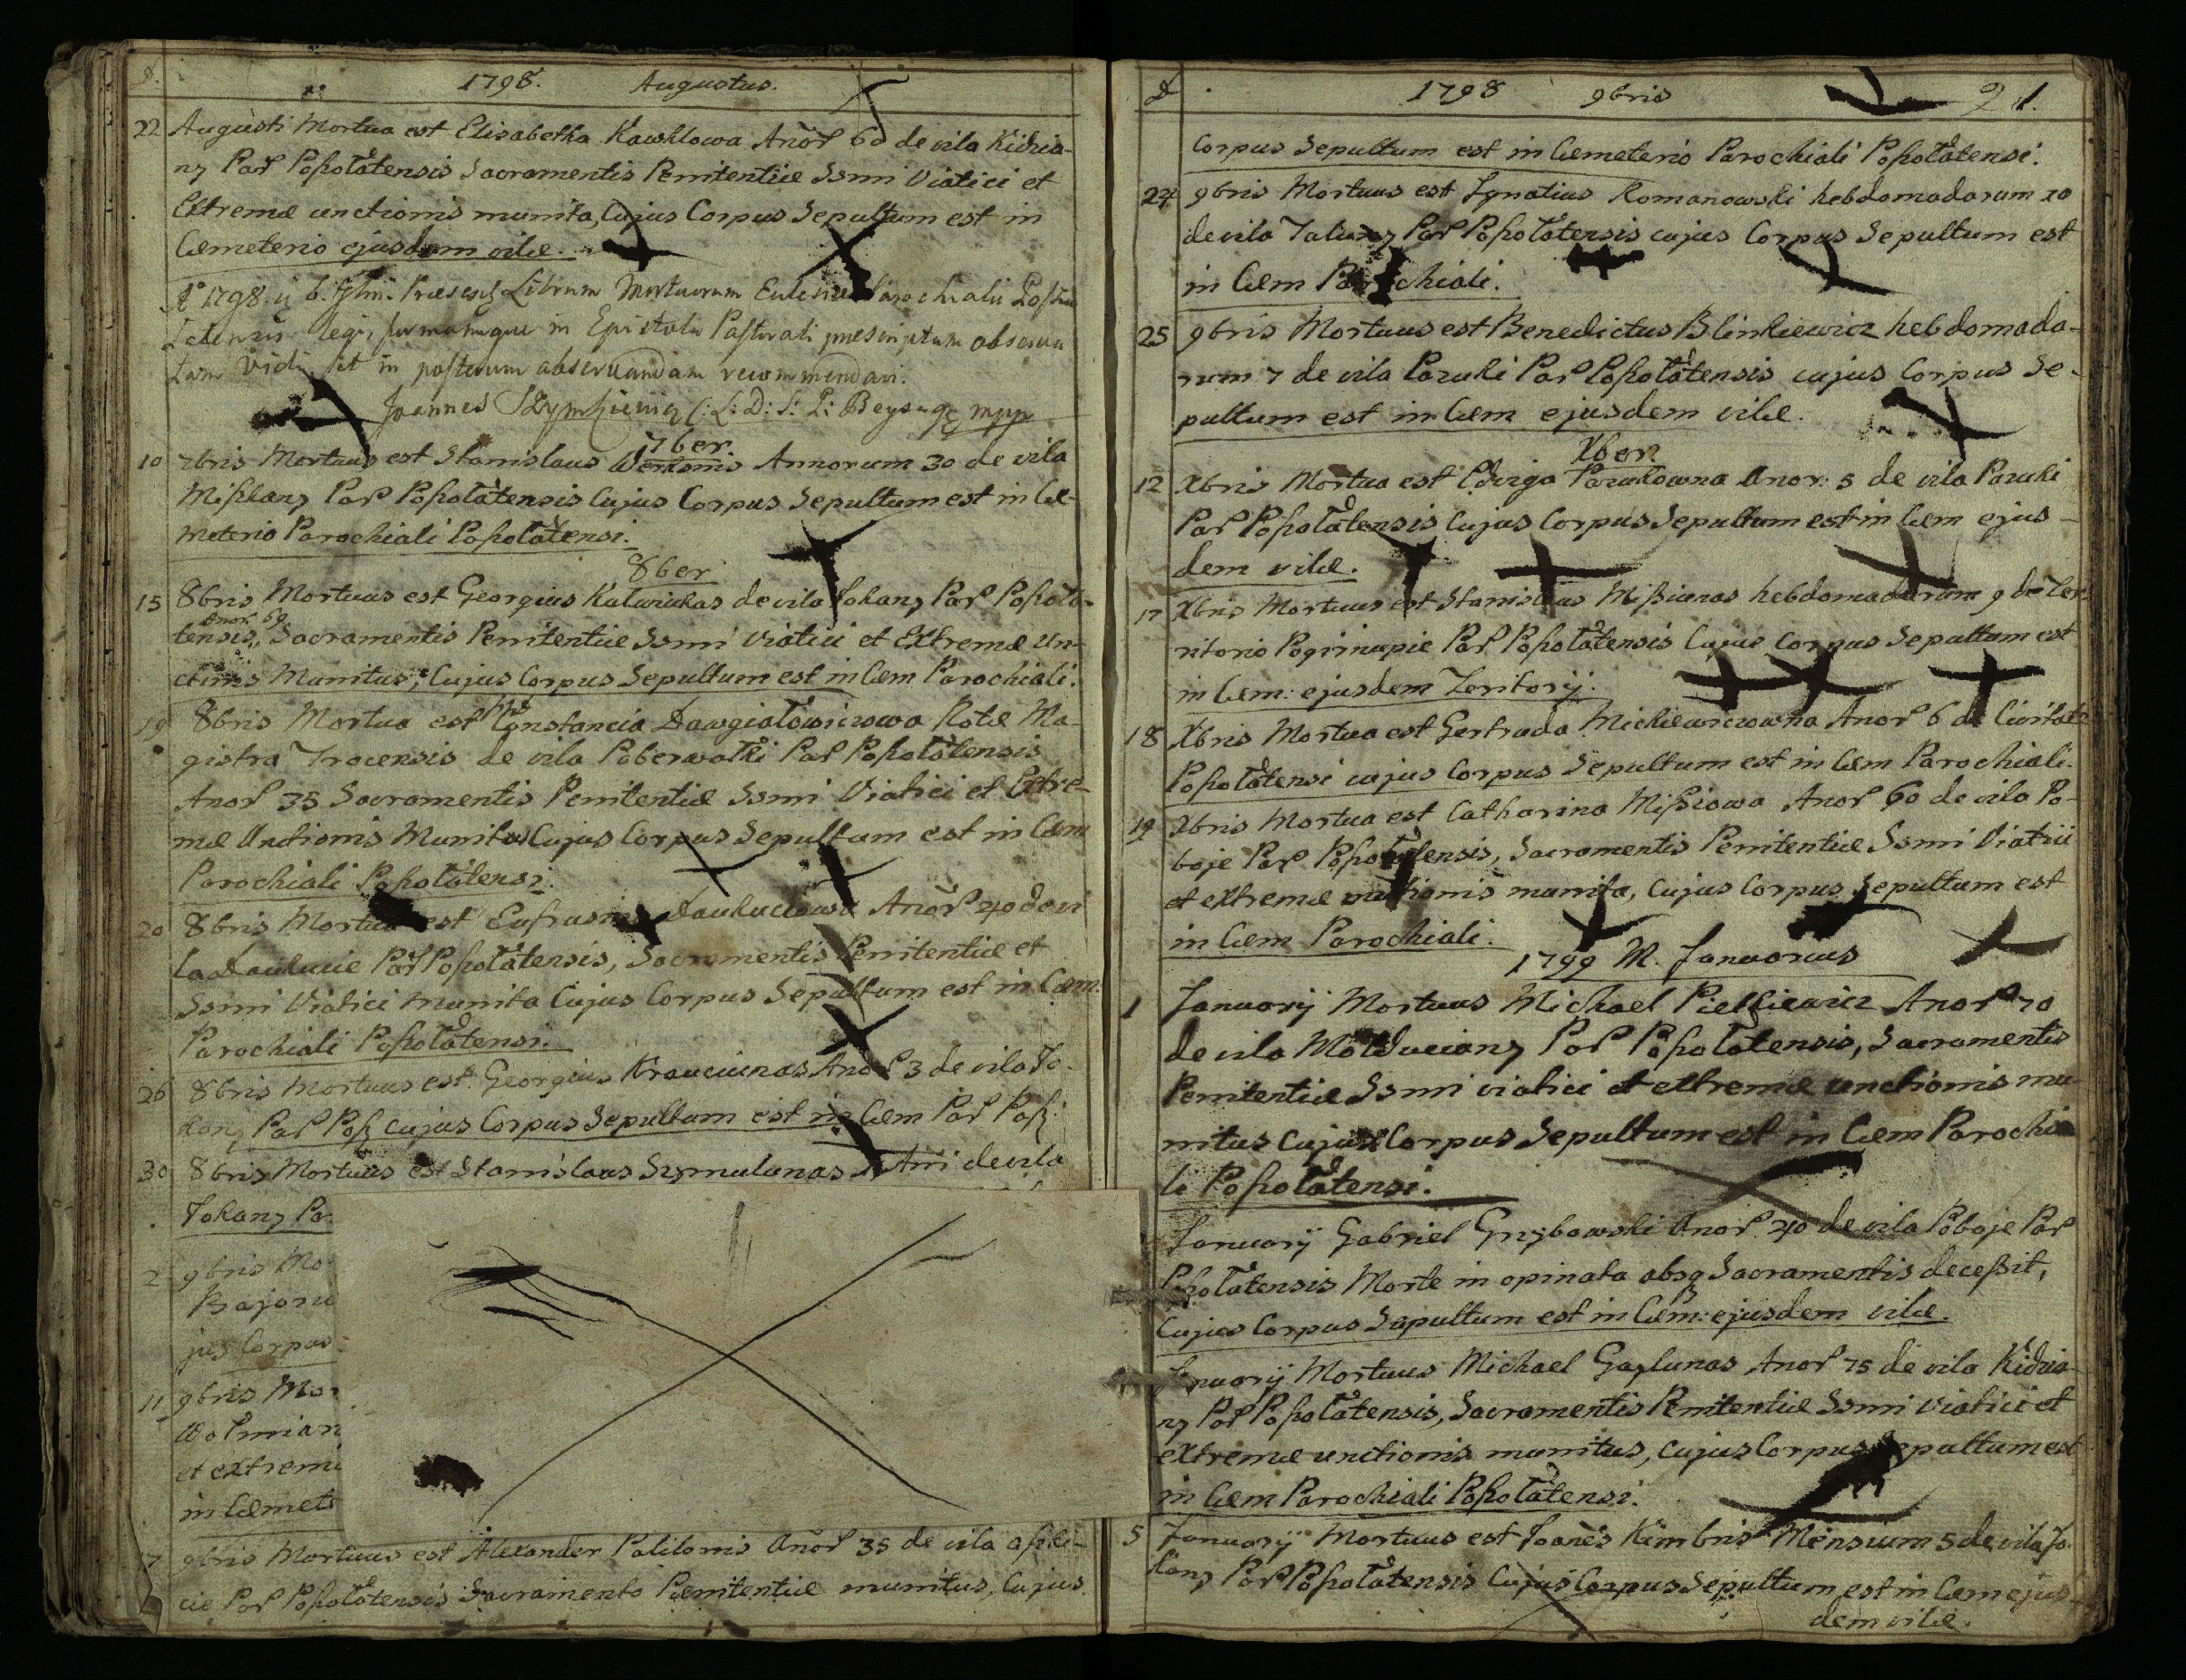 D. 1798. Augustus.
22 Augusti Mortua est Elisabetha Kawklowa Anor̃ 60 de vila Kidzia-
ny Par Poszołatensis Sacramentis Penitentiæ Ssmi Viatici et
Extremæ unctionis munita, Cujus Corpus Sepultum est in
Cæmeterio ejusdem vilæ.
Aº 1798. Librum Mortuorum Parochialis
legi, formamque in Epistola Pastorali prescriptam observa
tam vidi, et in posterum observandam recommendavi.
Joannes mpp
7ber.
10 7bris Mortuus est Stanislaus Annorum 30 de vila
Miszkany Par Poszołatensis Cujus Corpus Sepultum est in Cæ-
meterio Parochiali Poszołatensi.
8ber
15 8bris Mortuus est Georgius de vila Jokany Par Poszoła-
Anor̃ 69
tensis, Sacramentis Penitentiæ Ssmi Viatici et Extremæ Un-
ctionis Munitus, Cujus Corpus Sepultum est in Cæm Parochiali.
19 8bris Mortua est Constancia Dawgiałowiczowa Rotæ Ma-
gistra Trocensis de vila Poberwałki Par Poszołatensis
Anor̃ 35 Sacramentis Penitentiæ Ssmi Viatici et Extre-
mæ Unctionis Munita Cujus Corpus Sepultum est in Cæm
Parochiali Poszołatensi.
20 8bris Mortua est Eufrasina Anor̃ 40 de vi
la Par Poszołatensis, Sacramentis Penitentiæ et
Ssmi Viatici Munita Cujus Corpus Sepultum est in Cæm.
Parochiali Poszołatensi.
26 8bris Mortuus est Georgius Krauciunas Anor̃ 3 de vila Jo-
kany Par Posz cujus Corpus Sepultum est in Cæm Par Posz
30 8bris Mortuus est Stanislaus Szymulunas Ani de vila
Jokany Pa
2 9bris Mo
Bajoru
jus Corpus
11 9bris Mor
Wołmian
et extremæ
in Cæmete
17 9bris Mortuus est Alexander Palilonis Anor̃ 35 de vila
cie Par Poszołatensis Sacramento Pænitentiæ munitus, Cujus
D. 1798 9bris 21.
Corpus Sepultum est in Cæmeterio Parochiali Poszołatensi.
24 9bris Mortuus est Ignatius Romanowski hebdomadarum 20
de vila Par Poszołatensis cujus Corpus Sepultum est
in Cæm Parochiali.
25 9bris Mortuus est Benedictus Blinkiewicz hebdomada-
rum 7 de vila Pazuki Par Poszołatensis cujus Corpus Se-
pultum est in Cæm ejusdem vilæ.
Xber.
12 Xbris Mortua est Edviga Pazukowna Anor: 5 de vila Pazuki
Par Poszołatensis Cujus Corpus Sepultum est in Cæm ejus-
dem vilæ.
17 Xbris Mortuus est Stanislaus Misziunas hebdomadarum 9 de Ter-
ritorio Pogirnupie Par Poszołatensis Cujus Corpus Sepultum est
in Cæm: ejusdem Teritorij.
18 Xbris Mortua est Gertruda Mickiewiczowna Anor̃ 6 de Civitate
Poszołatensi cujus Corpus Sepultum est in Cæm Parochiali.
19 Xbris Mortua est Catharina Misziowa Anor̃ 60 de vila Po-
boje Par Poszołatensis, Sacramentis Penitentiæ Ssmi Viatici
et extremæ unctionis munita, Cujus Corpus Sepultum est
in Cæm Parochiali.
1799 M. Januarius
1 Januarij Mortuus Michael Pietkiewicz Anor̃ 70
de vila Mołduciany Par Poszołatensis, Sacramentis
Penitentiæ Ssmi viatici et extremæ unctionis mu-
nitus Cujus Corpus Sepultum est in Cæm Parochia
li Poszołatensi.
Januarij Gabriel Grzybowski Anor̃ 40 de vila Poboje Par
Poszołatensis Morte in opinata absq Sacramentis decessit,
Cujus Corpus Sepultum est in Cæm: ejusdem vilæ.
Januarij Mortuus Michael Gaylunas Anor̃ 75 de vila Kidzia-
ny Par Poszołatensis, Sacramentis Penitentiæ Ssmi Viatici et
extremæ unctionis munitus, cujus Corpus Sepultum est
in Cæm Parochiali Poszołatensi.
5 Januarij Mortuus est Joanes Kimbris Mensium 5 de vila Jo-
kany Par Poszołatensis Cujus Corpus Sepultum est in Cæm ejus-
dem vilæ.